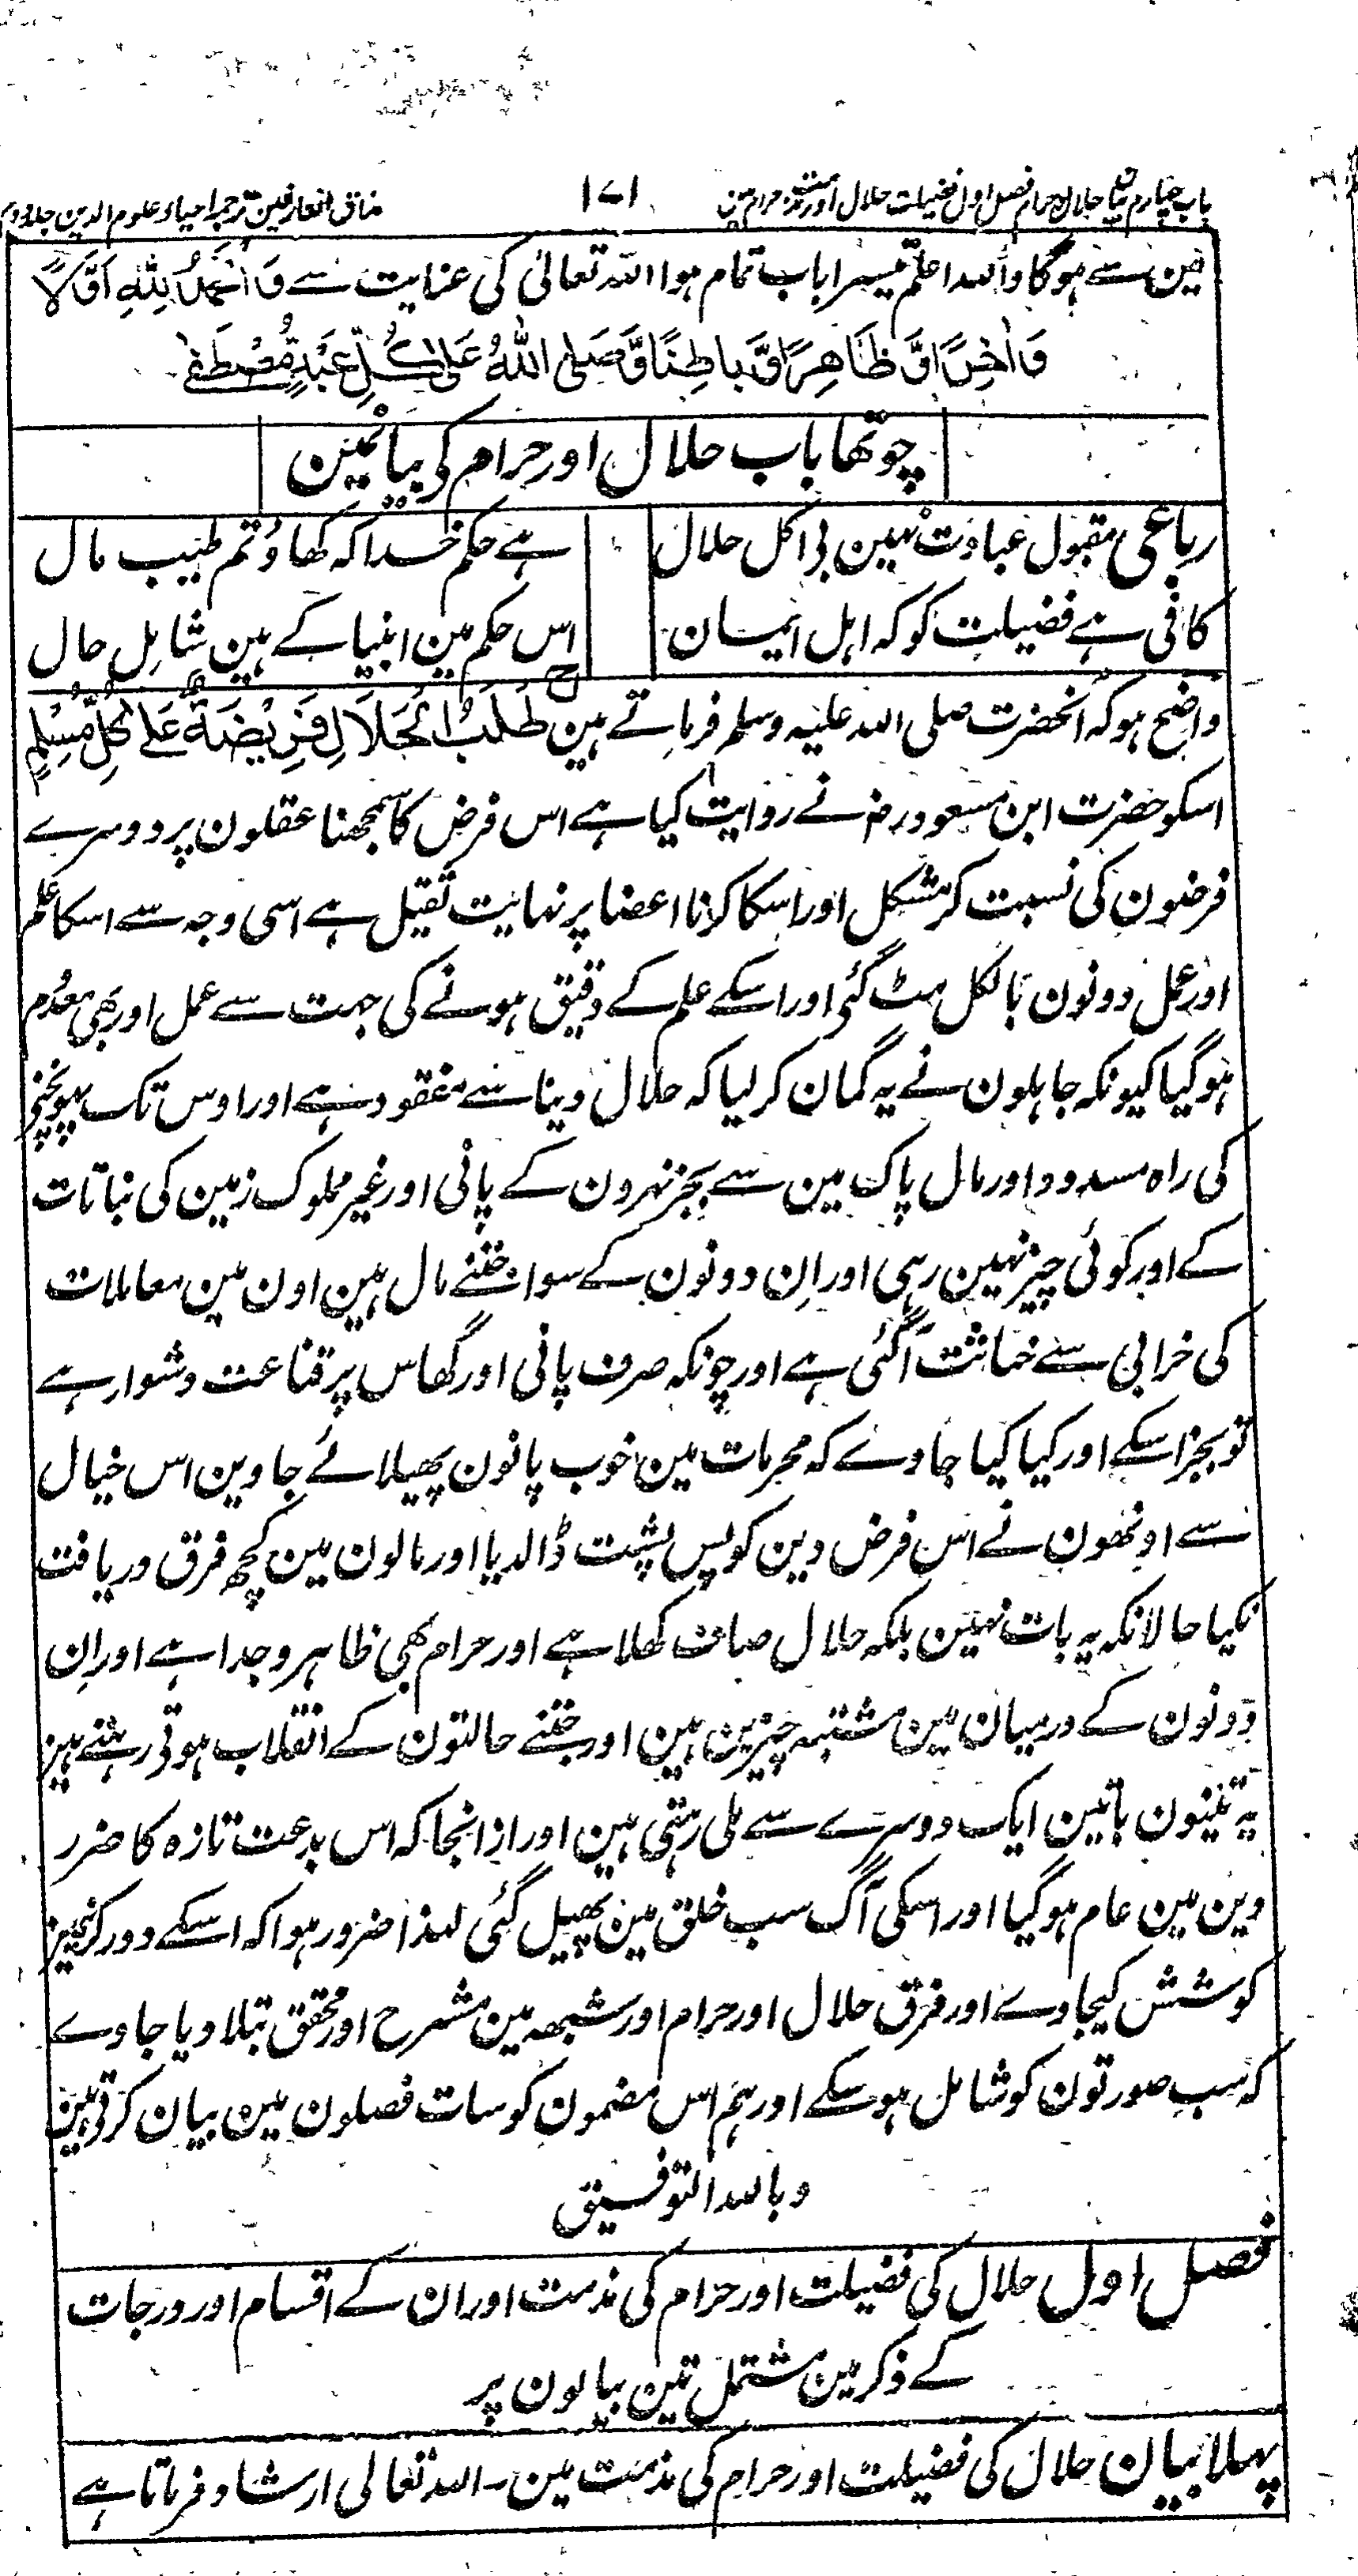 باب چہارم بیان حلال و حرام فصل اول فضیلت حلال اور مذمت حرام مین
۱۷۱
مذاق العارفین ترجمہ احیاء علوم الدین جلد دوم
مین سے ہوگا واللہ اعلم تیسرا باب تمام ہوا اللہ تعالیٰ کی عنایت سے وَالْحَمْدُ لِلّٰهِ اَوَّلًا
وَاٰخِرًا وَّ ظَاهِرًا وَّ بَاطِنًا وَّصَلَی اللّٰهُ عَلٰی كُلِّ عَبْدٍ مُّصْطَفٰے
چوتھا باب حلال اور حرام کی بیانمین
رباعی مقبول عبادت نہین بی اکل حلال
ہے حکم خدا کہ کھاؤ تم طیب مال
کافی ہے فضیلت کو کہ اہل ایمان
اس حکم مین انبیا کے ہین شامل حال
واضح ہو کہ آنحضرت صلی اللہ علیہ وسلم فرماتے ہین طَلَبُ الْحَلَالِ فَرِيْضَةٌ عَلٰے كُلِّ مُسْلِمٍ
اسکو حضرت ابن مسعود رض نے روایت کیا ہے اس فرض کا سمجھنا عقلون پر دوسرے
فرضون کی نسبت کر مشکل اور اسکا کرنا اعضا پر نہایت ثقیل ہے اسی وجہ سے اسکا علم
اور عمل دونون بالکل مٹ گئی اور اسکے علم کے دقیق ہونے کی جہت سے عمل اور بھی معدوم
ہوگیا کیونکہ جاہلون نے یہ گمان کرلیا کہ حلال دینا سے مفقود ہے اور اوس تک پہونچنے
کی راہ مسدود اور مال پاک مین سے بجز نہرون کے پانی اور غیر مملوک زمین کی نباتات
کے اور کوئی چیز نہین رہی اور اِن دونون کے سوا جتنے مال ہین اون مین معاملات
کی خرابی سے خباثت آگئی ہے اور چونکہ صرف پانی اور گھاس پر قناعت دشوار ہے
تو بجز اسکے اور کیا کیا جاوے کہ محرمات مین خوب پانون پھیلائے جاوین اس خیال
سے اونھون نے اس فرض دین کو پس پشت ڈالدیا اور مالون مین کچھ فرق دریافت
نکیا حالانکہ یہ بات نہین بلکہ حلال صاف کھلا ہے اور حرام بھی ظاہر و جدا ہے اور اِن
دونون کے درمیان مین مشتبہ چیزین ہین اور جتنے حالتون کے انقلاب ہوتی رہتے ہین
یہ تینون باتین ایک دوسرے سے ملی رہتی ہین اور ازانجا کہ اس بدعت تازہ کا ضرر
دین مین عام ہوگیا اور اسکی آگ سب خلق مین پھیل گئی لہذا ضرور ہوا کہ اسکے دور کرنیمین
کوشش کیجاوے اور فرق حلال اور حرام اور شبہہ مین مشرح اور محقق بتلا دیا جاوے
کہ سب صورتون کو شامل ہوسکے اور ہم اس مضمون کو سات فصلون مین بیان کرتی ہین
وباللہ التوفیق
فصل اول حلال کی فضیلت اور حرام کی مذمت اور ان کے اقسام اور درجات
کے ذکر مین مشتمل تین بیانون پر
پہلا بیان حلال کی فضیلت اور حرام کی مذمت مین ۔ اللہ تعالی ارشاد فرماتا ہے